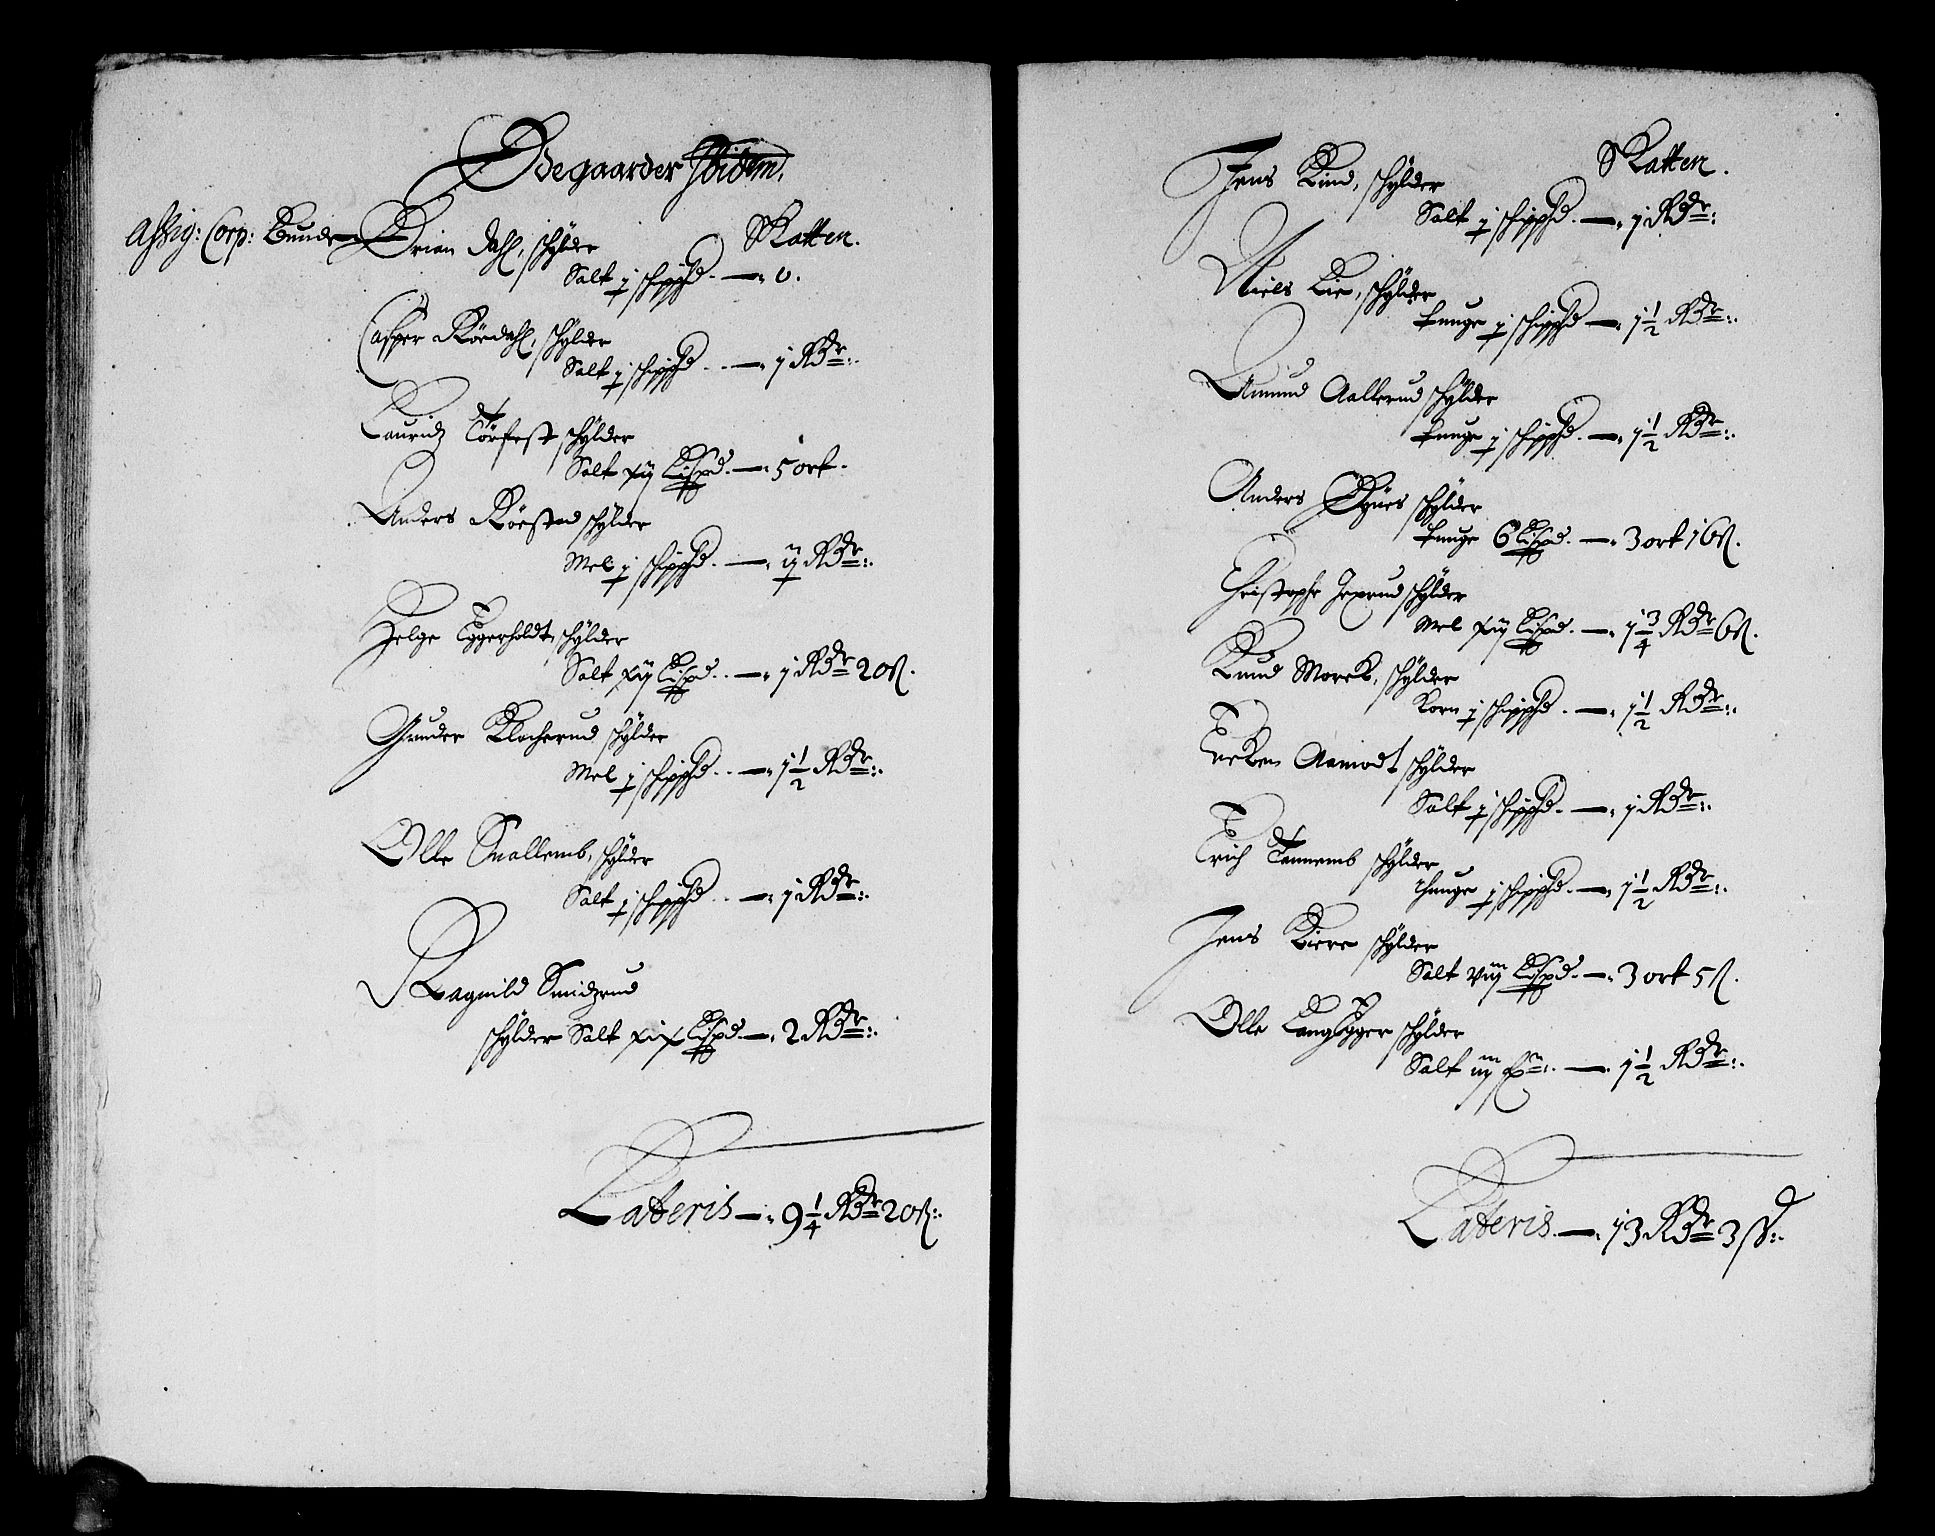 Ødegaarder Ibidem,
Assig: Corp: Bunde
Skatten.
Brian Dahl, schÿlder
Salt j schippd. — 0.
Casper Rørdahl, schÿlder
Salt j schippd . — j Rdr:
Lauridz Tørfest schÿlder
Salt xij Lispd. — 5 ort.
Anders Røested schÿlder
Mel j schippd. — ij Rdr:
Helge Eggerholdt, schÿlder
Salt xij Lispd. — j Rdr 20 ß.
Gunder Klocherud schÿlder
Mel j schippd. — j 1/2 Rdr:
Olle Snallemb, schÿlder
Salt j schippd . — j Rdr:
Ragnild Smidzrud
schÿlder Salt xix Lispd — 2 Rdr:
Lateris — 9 1/4 Rdr 20 ß:
Skatten.
Jens Lind, schÿlder
Salt j schippd. — j Rdr:
Niels Lie, schÿlder
Tunge j schippd — j 1/2 Rdr:
Amund Aallerud schÿlder
Tunge j schippd. — j 1/2 Rdr:
Anders Øÿnes schÿlder
Tunge 6 Lispd. — 3 ort 16 ß.
Christopher Jexrud schÿlder
Mel xiij Lispd. — j 3/4 Rdr 6 ß.
Knud Morck, schÿlder
Korn j schippd . — j 1/2 Rdr:
Torben Aamodt schÿlder
Salt j schippd. — j Rdr:
Erich Tannemb schÿlder
Thunge j schippd. — j 1/2 Rdr:
Jens Kiere schÿlder
Salt viij Lispd. — 3 ort 5 ß.
Olle Langegger schÿlder
Salt iij — j 1/2 Rdr:
Lateris — j3 Rdr 3 ß: